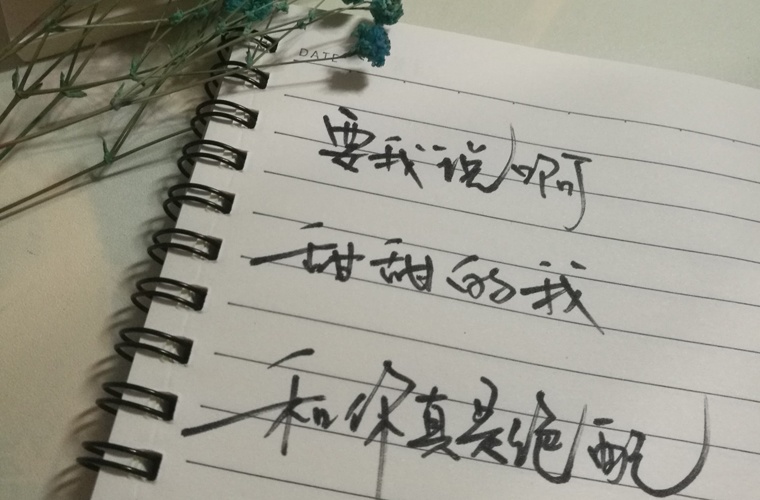 DATE
要我说啊
甜甜的我
和你真是绝配